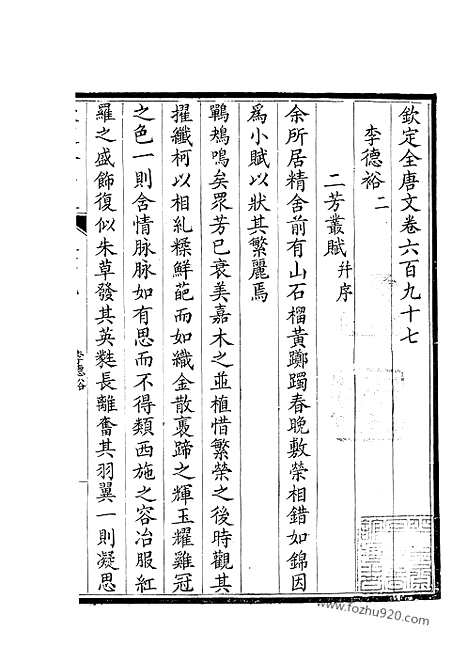 欽定全唐文卷六百九十七
李德裕二
二芳叢賦并序
余所居精舍前有山石榴黃躑躅春晚敷榮相錯如錦因
爲小賦以狀其繁麗焉
鶗鴂鳴矣眾芳已衰美嘉木之並植惜繁榮之後時觀其
擢纖柯以相糺糅鮮葩而如織金散裹蹄之輝玉耀雞冠
之色一則含情脉脉如有思而不得類西施之容冶服紅
羅之盛飾復似朱草發其英蕤長離奮其羽翼一則凝思
李德裕
www.fozhu920.com